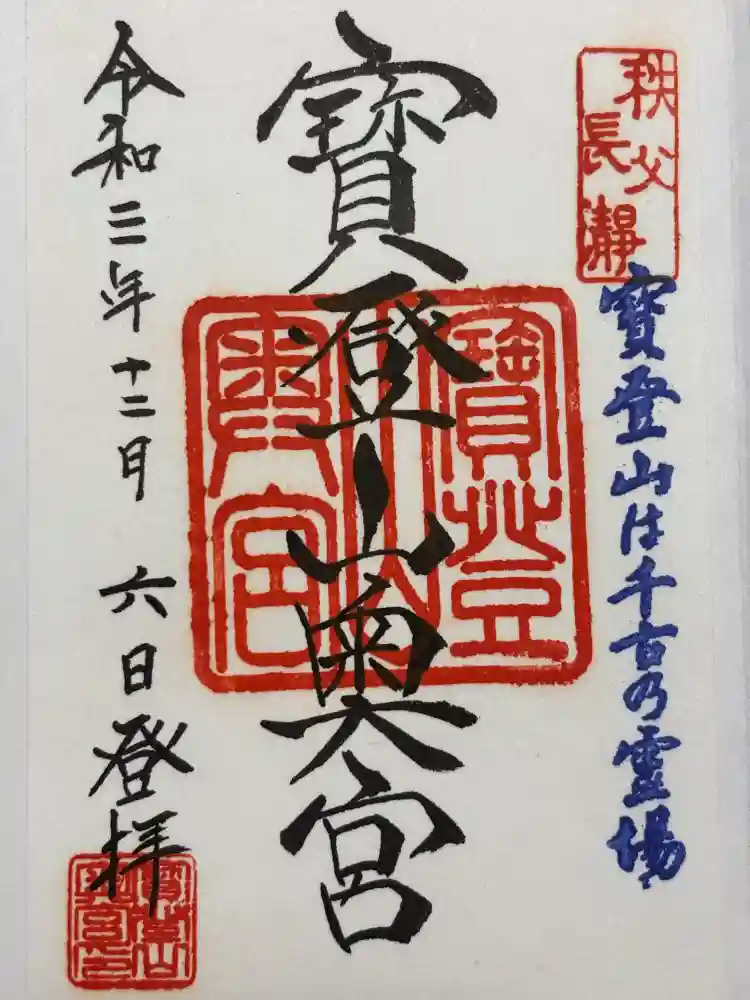 秩父
長瀞
寶登山は千古乃霊場
寶登山奥宮
寶登
山
奥宮
令和三年十二月 六日登拝